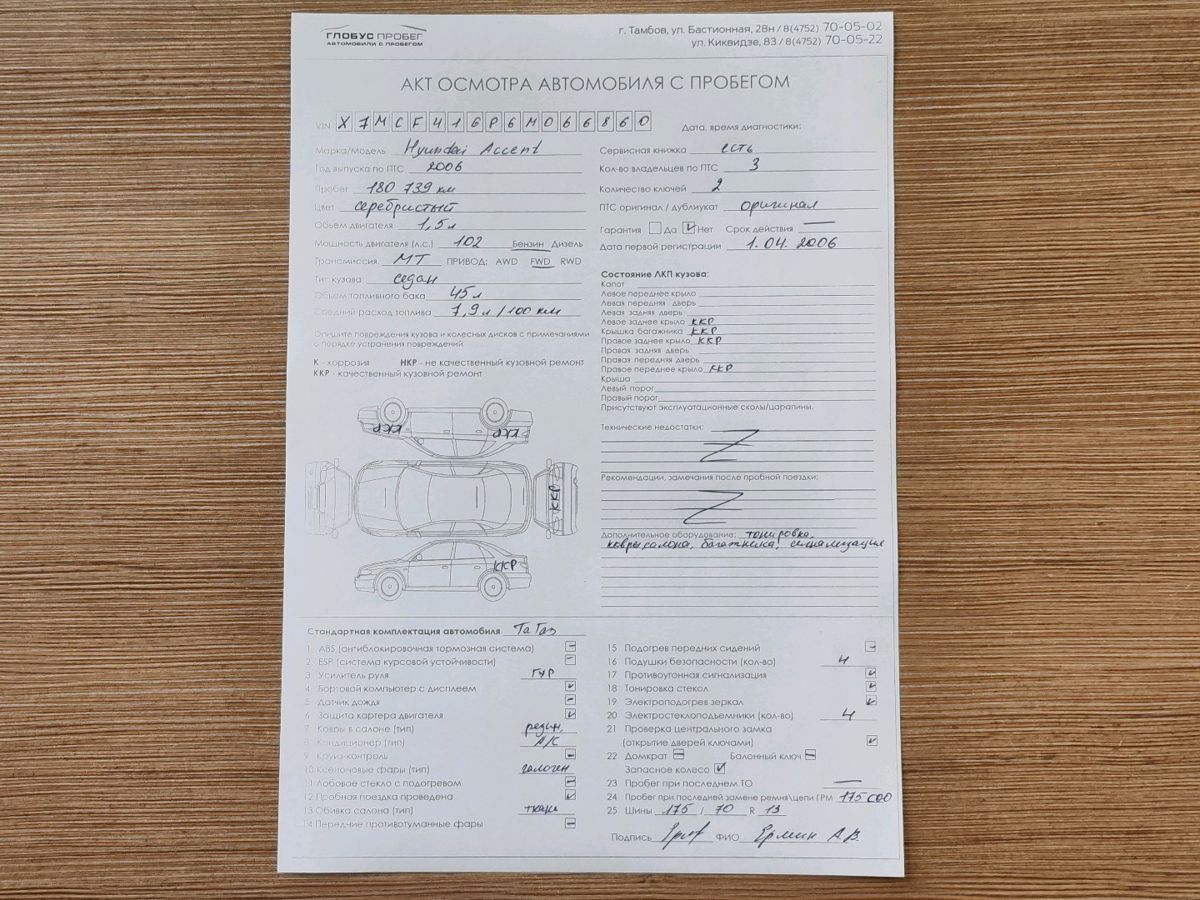 ГЛОБУС ПРОБЕГ
АВТОМОБИЛИ С ПРОБЕГОМ
г. Тамбов, ул. Бастионная, 28н / 8(4752) 70-05-02
ул. Киквидзе, 83 / 8(4752) 70-05-22
АКТ ОСМОТРА АВТОМОБИЛЯ С ПРОБЕГОМ
VIN X7MCF41GP6M066860
Марка/Модель Hyundai Accent
Год выпуска по ПТС 2006
Пробег 180 739 км
Цвет серебристый
Объем двигателя 1,5л
Мощность двигателя (л.с.) 102 Бензин Дизель
Трансмиссия МТ ПРИВОД: AWD FWD RWD
Тип кузова седан
Объем топливного бака 45л
Средний расход топлива 7,9л/100 км
Опишите повреждения кузова и колесных дисков с примечаниями
о порядке устранения повреждений
К - коррозия НКР - не качественный кузовной ремонт
ККР - качественный кузовной ремонт
ККР
ККР
ККР
ККР
Дата, время диагностики:
Сервисная книжка есть
Кол-во владельцев по ПТС 3
Количество ключей 2
ПТС оригинал / дубликат оригинал
Гарантия Да Нет Срок действия —
Дата первой регистрации 1.04.2006
Состояние ЛКП кузова:
Капот
Левое переднее крыло
Левая передняя дверь
Левая задняя дверь
Левое заднее крыло ККР
Крышка багажника ККР
Правое заднее крыло ККР
Правая задняя дверь
Правая передняя дверь
Правое переднее крыло ККР
Крыша
Левый порог
Правый порог
Присутствуют эксплуатационные сколы/царапины.
Технические недостатки:
Рекомендации, замечания после пробной поездки:
Дополнительное оборудование: тонировка,
ковры салона, багажника, сигнализация
Стандартная комплектация автомобиля ТаГаз
1 ABS (антиблокировочная тормозная система) -
2 ESP (система курсовой устойчивости) -
3 Усилитель руля ГУР
4 Бортовой компьютер с дисплеем
5 Датчик дождя -
6 Защита картера двигателя
7 Ковры в салоне (тип) резин.
8 Кондиционер (тип) A/C
9 Круиз-контроль -
10 Ксеноновые фары (тип) галоген
11 Лобовое стекло с подогревом -
12 Пробная поездка проведена
13 Обивка салона (тип) ткань
14 Передние противотуманные фары -
15 Подогрев передних сидений -
16 Подушки безопасности (кол-во) 4
17 Противоугонная сигнализация
18 Тонировка стекол
19 Электроподогрев зеркал
20 Электростеклоподъемники (кол-во) 4
21 Проверка центрального замка
(открытие дверей ключами)
22 Домкрат - Балонный ключ -
Запасное колесо
23 Пробег при последнем ТО —
24 Пробег при последней замене ремня\цепи ГРМ 175 000
25 Шины 175 / 70 R 13
Подпись ФИО Ермин А.В.